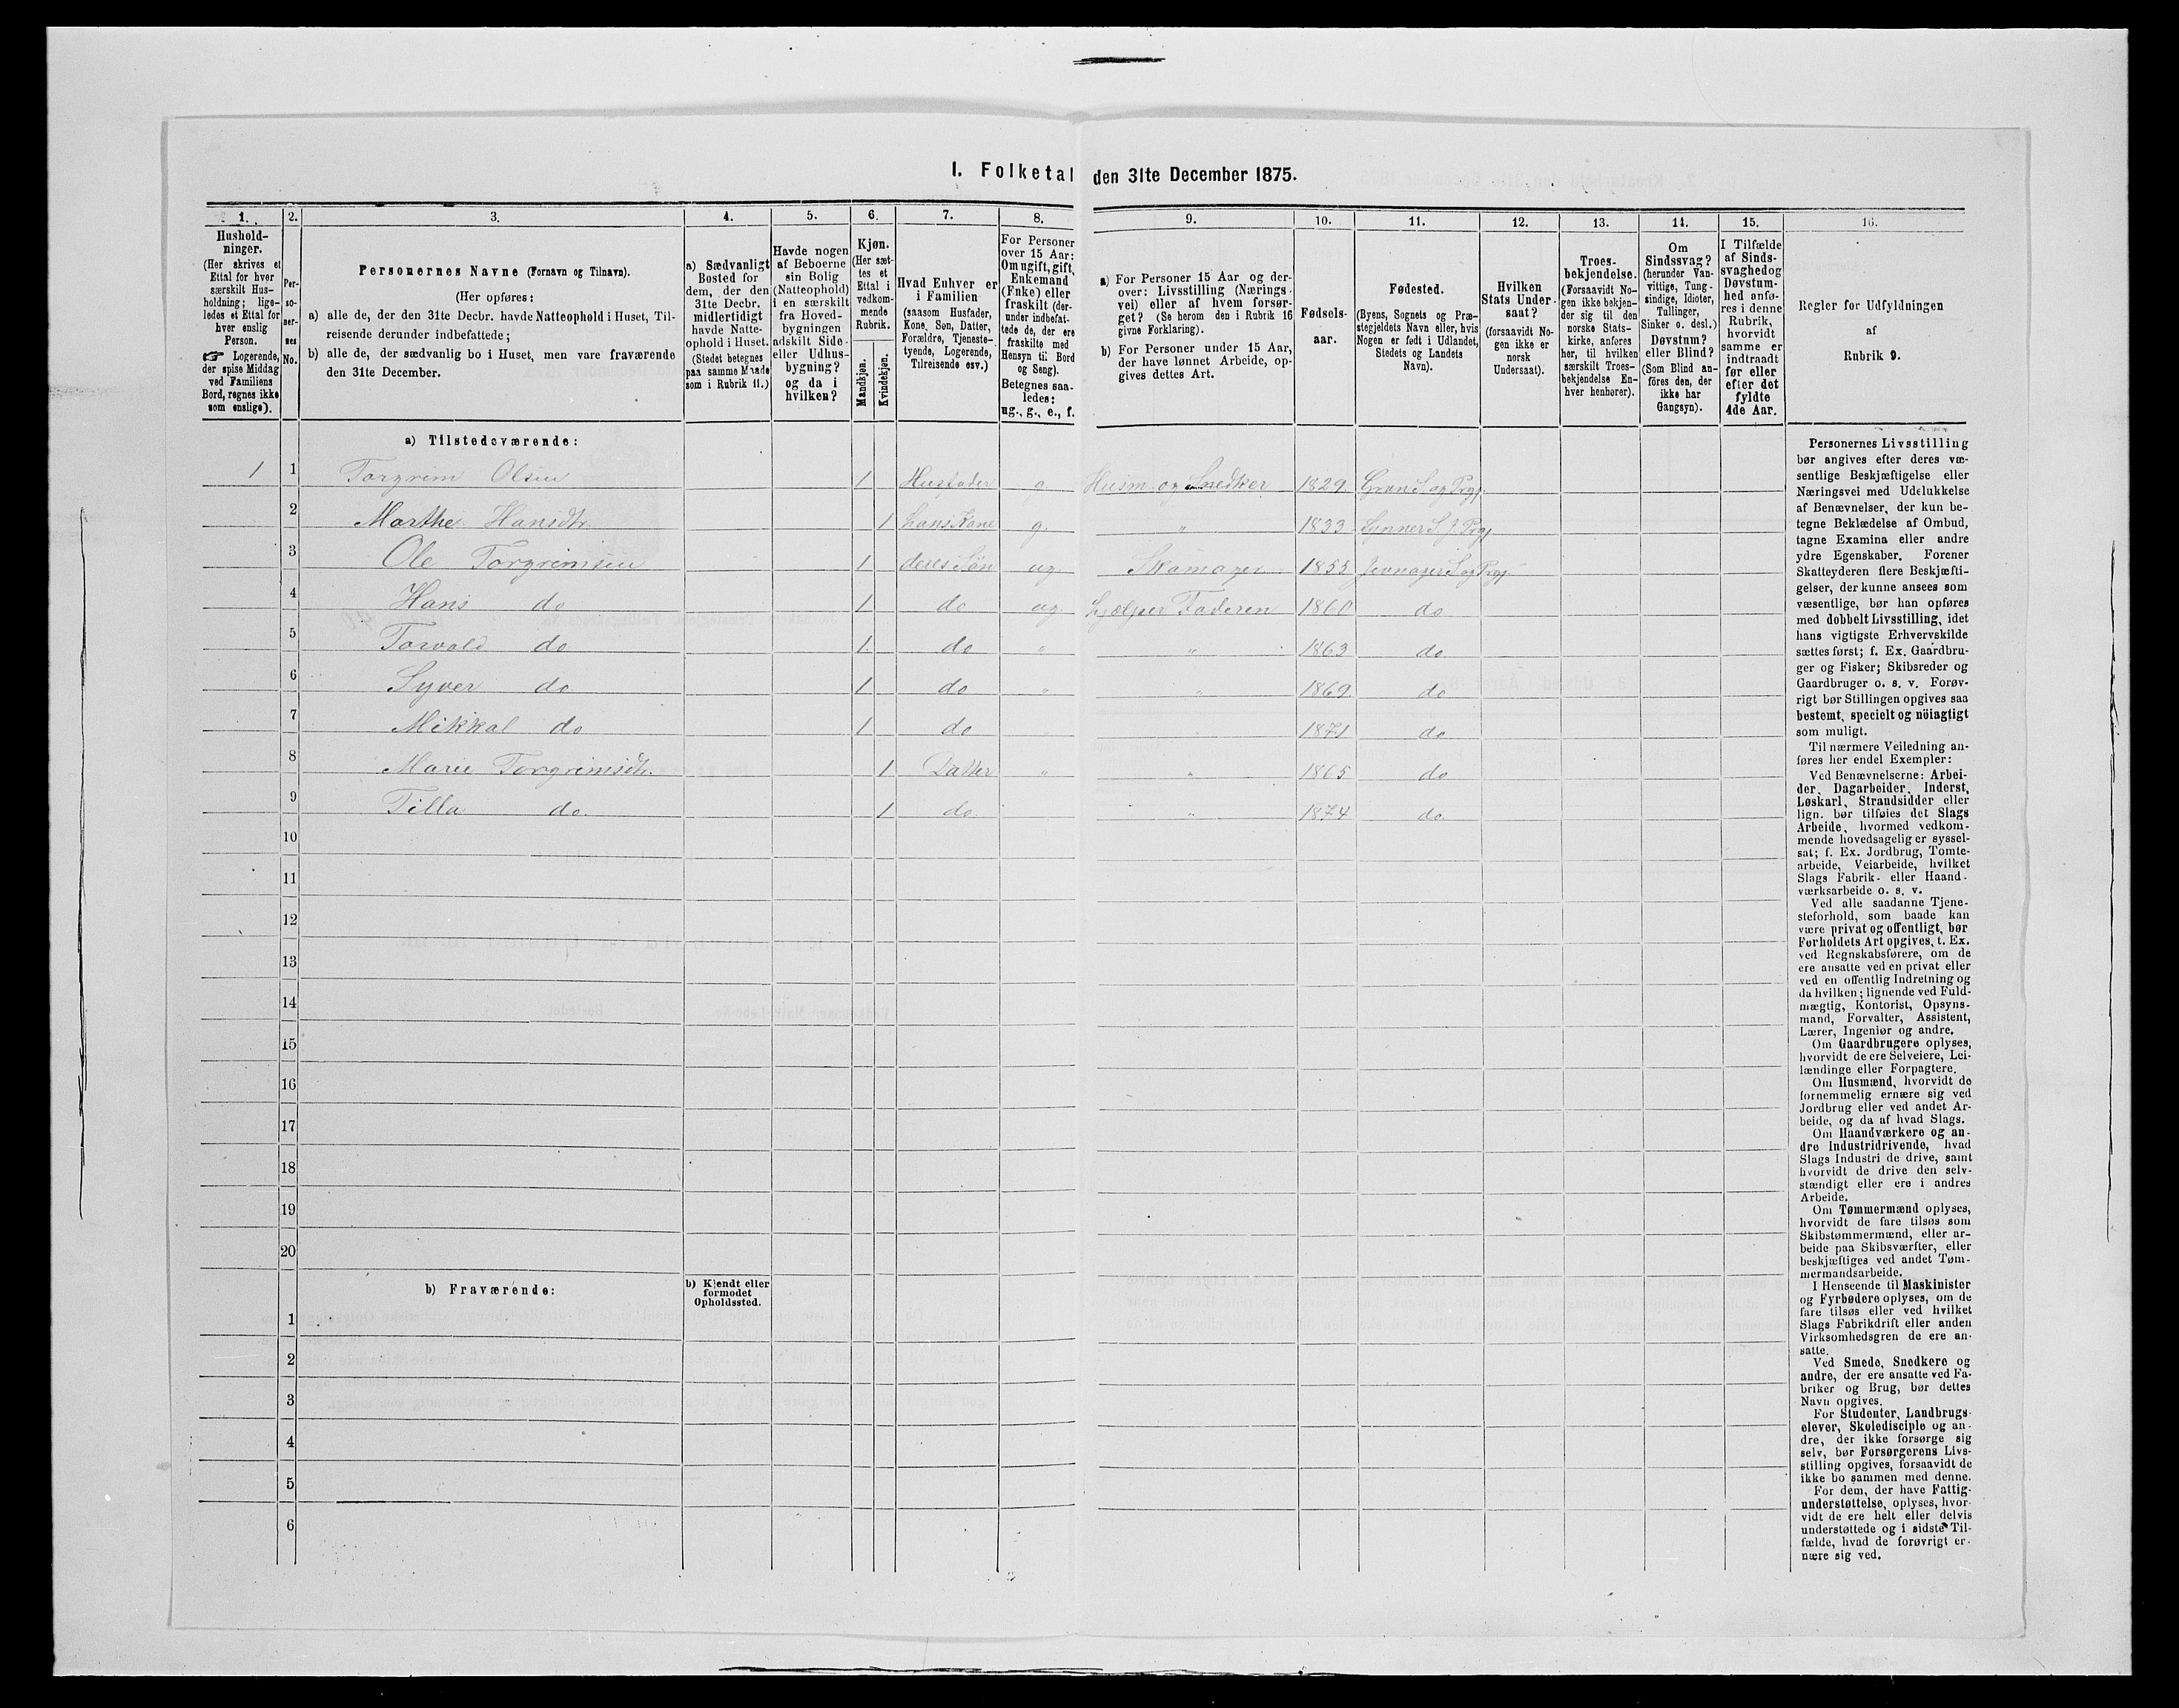 I. Folketal den 31te December 1875.
1. 2. 3. 4. 5. 6. 7. 8. 9. 10. 11. 12. 13. 14. 15. 16.
Hushold-
ninger.
(Her skrives et
Ettal for hver
særskilt Hus-
holdning; lige-
ledes et Ettal for
hver enslig
Person.
☞ Logerende,
der spise Middag
ved Familiens
Bord, regnes ikke
som enslige).
Per-
so-
ner-
nes
No.
Personernes Navne (Fornavn og Tilnavn).
(Her opføres:
a) alle de, der den 31te Decbr. havde Natteophold i Huset, Til-
reisende derunder indbefattede;
b) alle de, der sædvanlig bo i Huset, men vare fraværende
den 31te December.
a) Sædvanligt
Bosted for
dem, der den
31te Decbr.
midlertidigt
havde Natte-
ophold i Huset.
(Stedet betegnes
paa samme Maade
som i Rubrik 11.)
Havde nogen
af Beboerne
sin Bolig
(Natteophold)
i en særskilt
fra Hoved-
bygningen
adskilt Side-
eller Udhus-
bygning?
og da i
hvilken?
Kjøn.
(Her sæt-
tes et
Ettal i
vedkom-
mende
Rubrik.
Mandkjøn.
Kvindekjøn.
Hvad Enhver er
i Familien
(saasom Husfader,
Kone, Søn, Datter,
Forældre, Tjeneste-
tyende, Logerende,
Tilreisende osv.)
For Personer
over 15 Aar:
Om ugift, gift,
Enkemand
(Enke) eller
fraskilt (der-
under indbefat-
tede de, der ere
fraskilte med
Hensyn til Bord
og Seng).
Betegnes saa-
ledes:
ug., g., e., f.
a) For Personer 15 Aar og der-
over: Livsstilling (Nærings-
vei) eller af hvem forsør-
get? (Se herom den i Rubrik 16
givne Forklaring).
b) For Personer under 15 Aar,
der have lønnet Arbeide, op-
gives dettes Art.
Fødsels-
aar.
Fødested.
(Byens, Sognets og Præ-
stegjeldets Navn eller, hvis
Nogen er født i Udlandet,
Stedets og Landets
Navn).
Hvilken
Stats Under-
saat?
(forsaavidt No-
gen ikke er
norsk
Undersaat).
Troes-
bekjendelse.
(Forsaavidt No-
gen ikke bekjen-
der sig til den
norske Stats-
kirke, anføres
her, til hvilken
særskilt Troes-
bekjendelse En-
hver henhører).
Om
Sindssvag?
(herunder Van-
vittige, Tung-
sindige, Idioter,
Tullinger,
Sinker o. desl.)
Døvstum?
eller Blind?
(Som Blind an-
föres den, der
ikke har
Gangsyn).
I Tilfælde
af Sinds-
svaghed og
Døvstum-
hed anfø-
res i denne
Rubrik,
hvorvidt
samme er
indtraadt
før eller
efter det
fyldte
4de Aar.
Regler for Udfyldningen
af
Rubrik 9.
a) Tilstedeværende:
1 1 Torgrim Olsen 1 Husfader g Husm. og Snedker 1829. Gran S. og Prgj.
2 Marthe Hansdtr. 1 hans Kone g. „ 1833 Lynner S. J. Prgj
3 Ole Torgrimsen 1 deres Søn ug Skomager 1855 Jevnager S og Prgj.
4 Hans do 1 do ug. hjælper Faderen 1860 do
5 Torvald do 1. do „ „ 1863 do
6 Syver do 1 do „ „ 1869. do
7 Mikkal do 1 do 1871 do
8 Marie Torgrimsdtr. 1 Datter „ „ 1865 do
9 Tilla do. 1 do. „ 1874 do.
10
11
12
13
14
15
16
17
18
19
20
b) Fraværende:
b) Kjendt eller
formodet
Opholdssted.
1
2
3
4
5
6
Personernes Livsstilling
bør angives efter deres væ-
sentlige Beskjæftigelse eller
Næringsvei med Udelukkelse
af Benævnelser, der kun be-
tegne Beklædelse af Ombud,
tagne Examina eller andre
ydre Egenskaber. Forener
Skatteyderen flere Beskjæfti-
gelser, der kunne ansees som
væsentlige, bør han opføres
med dobbelt Livsstilling, idet
hans vigtigste Erhvervskilde
sættes først; f. Ex. Gaardbru-
ger og Fisker; Skibsreder og
Gaardbruger o. s. v. Forøv-
rigt bør Stillingen opgives saa
bestemt, specielt og nöiagtigt
som muligt.
Til nærmere Veiledning an-
føres her endel Exempler:
Ved Benævnelserne: Arbei-
der, Dagarbeider, Inderst,
Løskarl, Strandsidder eller
lign. bør tilføies det Slags
Arbeide, hvormed vedkom-
mende hovedsagelig er syssel-
sat; f. Ex. Jordbrug, Tomte-
arbeide, Veiarbeide, hvilket
Slags Fabrik- eller Haand-
værksarbeide o. s. v.
Ved alle saadanne Tjene-
steforhold, som baade kan
være privat og offentligt, bør
Forholdets Art opgives, t. Ex.
ved Regnskabsførere, om de
ere ansatte ved en privat eller
ved en offentlig Indretning og
da hvilken; lignende ved Fuld-
mægtig, Kontorist, Opsyns-
mand, Forvalter, Assistent,
Lærer, Ingeniør og andre.
Om Gaardbrugere oplyses,
hvorvidt de ere Selveiere, Lei-
lændinge eller Forpagtere.
Om Husmænd, hvorvidt de
fornemmelig ernære sig ved
Jordbrug eller ved andet Ar-
beide, og da af hvad Slags.
Om Haandværkere og an-
dre Industridrivende, hvad
Slags Industri de drive, samt
hvorvidt de drive den selv-
stændigt eller ere i andres
Arbeide.
Om Tømmermænd oplyses,
hvorvidt de fare tilsøs som
Skibstømmermænd, eller ar-
beide paa Skibsværfter, eller
beskjæftiges ved andet Tøm-
mermandsarbeide.
I Henseende til Maskinister
og Fyrbødere oplyses, om de
fare tilsøs eller ved hvilket
Slags Fabrikdrift eller anden
Virksomhedsgren de ere an-
satte.
Ved Smede, Snedkere og
andre, der ere ansatte ved Fa-
briker og Brug, bør dettes
Navn opgives.
For Studenter, Landbrugs-
elever, Skoledisciple og an-
dre, der ikke forsørge sig
selv, bør Forsørgerens Livs-
stilling opgives, forsaavidt de
ikke bo sammen med denne.
For dem, der have Fattig-
understøttelse, oplyses, hvor-
vidt de ere helt eller delvis
understøttede og i sidste Til-
fælde, hvad de forøvrigt er-
nære sig ved.